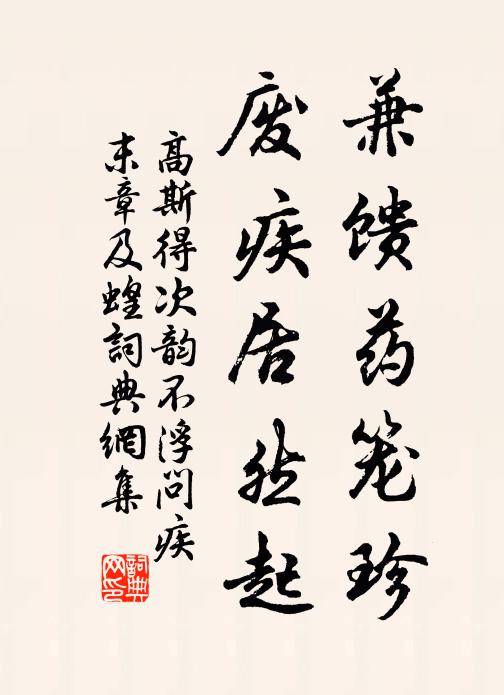 兼馈药笼珍
废疾居然起
高斯得次韵不浮问疾
末章及蝗词典网集
词典网印